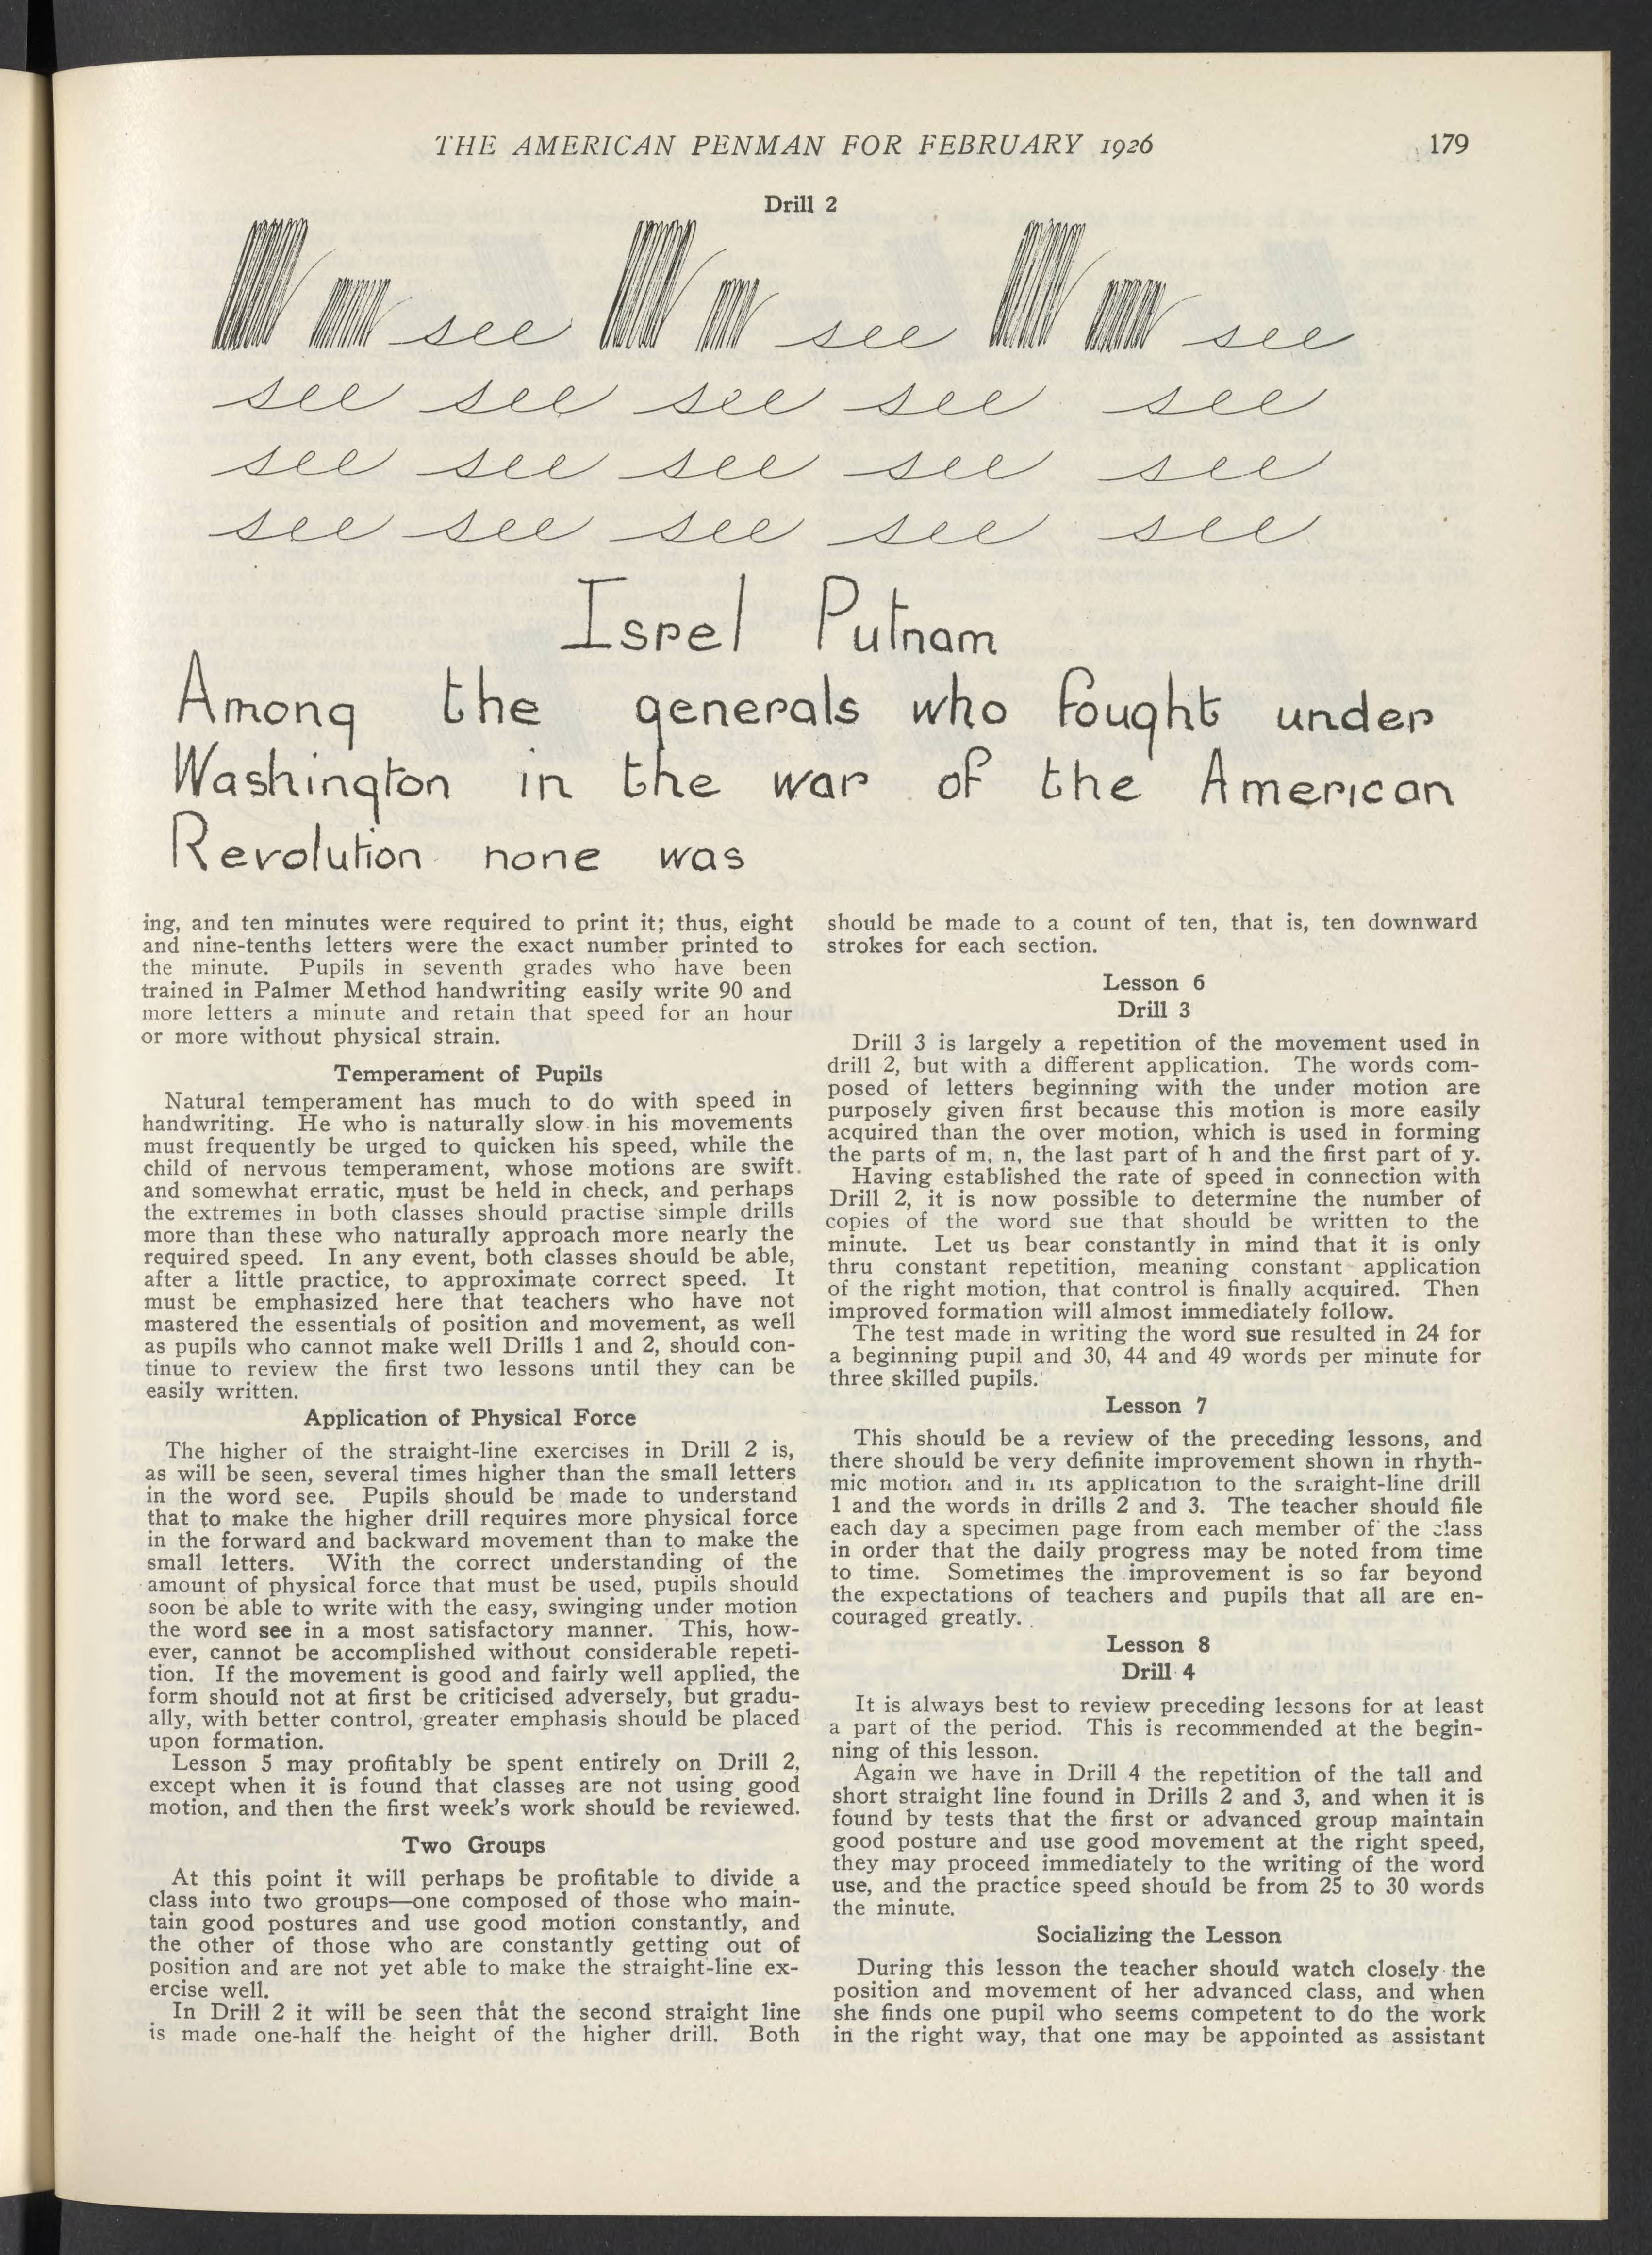 THE AMERICAN PENMAN FOR FEBRUARY 1926 179
Drill 2
see see see
see see see see see
see see see see see
see see see see see
Isrel Putnam
Among the generals who fought under
Washington in the war of the American
Revolution none was
ing, and ten minutes were required to print it; thus, eight
and nine-tenths letters were the exact number printed to
the minute. Pupils in seventh grades who have been
trained in Palmer Method handwriting easily write 90 and
more letters a minute and retain that speed for an hour
or more without physical strain.
Temperament of Pupils
Natural temperament has much to do with speed in
handwriting. He who is naturally slow in his movements
must frequently be urged to quicken his speed, while the
child of nervous temperament, whose motions are swift
and somewhat erratic, must be held in check, and perhaps
the extremes in both classes should practise simple drills
more than these who naturally approach more nearly the
required speed. In any event, both classes should be able,
after a little practice, to approximate correct speed. It
must be emphasized here that teachers who have not
mastered the essentials of position and movement, as well
as pupils who cannot make well Drills 1 and 2, should con-
tinue to review the first two lessons until they can be
easily written.
Application of Physical Force
The higher of the straight-line exercises in Drill 2 is,
as will be seen, several times higher than the small letters
in the word see. Pupils should be made to understand
that to make the higher drill requires more physical force
in the forward and backward movement than to make the
small letters. With the correct understanding of the
amount of physical force that must be used, pupils should
soon be able to write with the easy, swinging under motion
the word see in a most satisfactory manner. This, how-
ever, cannot be accomplished without considerable repeti-
tion. If the movement is good and fairly well applied, the
form should not at first be criticised adversely, but gradu-
ally, with better control, greater emphasis should be placed
upon formation.
Lesson 5 may profitably be spent entirely on Drill 2,
except when it is found that classes are not using good
motion, and then the first week's work should be reviewed.
Two Groups
At this point it will perhaps be profitable to divide a
class into two groups—one composed of those who main-
tain good postures and use good motion constantly, and
the other of those who are constantly getting out of
position and are not yet able to make the straight-line ex-
ercise well.
In Drill 2 it will be seen that the second straight line
is made one-half the height of the higher drill. Both
should be made to a count of ten, that is, ten downward
strokes for each section.
Lesson 6
Drill 3
Drill 3 is largely a repetition of the movement used in
drill 2, but with a different application. The words com-
posed of letters beginning with the under motion are
purposely given first because this motion is more easily
acquired than the over motion, which is used in forming
the parts of m, n, the last part of h and the first part of y.
Having established the rate of speed in connection with
Drill 2, it is now possible to determine the number of
copies of the word sue that should be written to the
minute. Let us bear constantly in mind that it is only
thru constant repetition, meaning constant application
of the right motion, that control is finally acquired. Then
improved formation will almost immediately follow.
The test made in writing the word sue resulted in 24 for
a beginning pupil and 30, 44 and 49 words per minute for
three skilled pupils.
Lesson 7
This should be a review of the preceding lessons, and
there should be very definite improvement shown in rhyth-
mic motion and in its application to the straight-line drill
1 and the words in drills 2 and 3. The teacher should file
each day a specimen page from each member of the class
in order that the daily progress may be noted from time
to time. Sometimes the improvement is so far beyond
the expectations of teachers and pupils that all are en-
couraged greatly.
Lesson 8
Drill 4
It is always best to review preceding lessons for at least
a part of the period. This is recommended at the begin-
ning of this lesson.
Again we have in Drill 4 the repetition of the tall and
short straight line found in Drills 2 and 3, and when it is
found by tests that the first or advanced group maintain
good posture and use good movement at the right speed,
they may proceed immediately to the writing of the word
use, and the practice speed should be from 25 to 30 words
the minute.
Socializing the Lesson
During this lesson the teacher should watch closely the
position and movement of her advanced class, and when
she finds one pupil who seems competent to do the work
in the right way, that one may be appointed as assistant